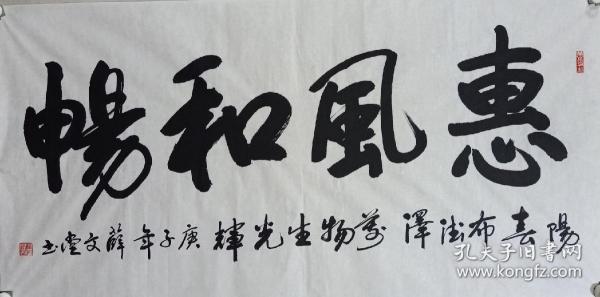 惠風和暢
陽春布德澤 萬物生光輝 庚子年 薛文堂书
孔夫子旧书网
www.kongfz.com